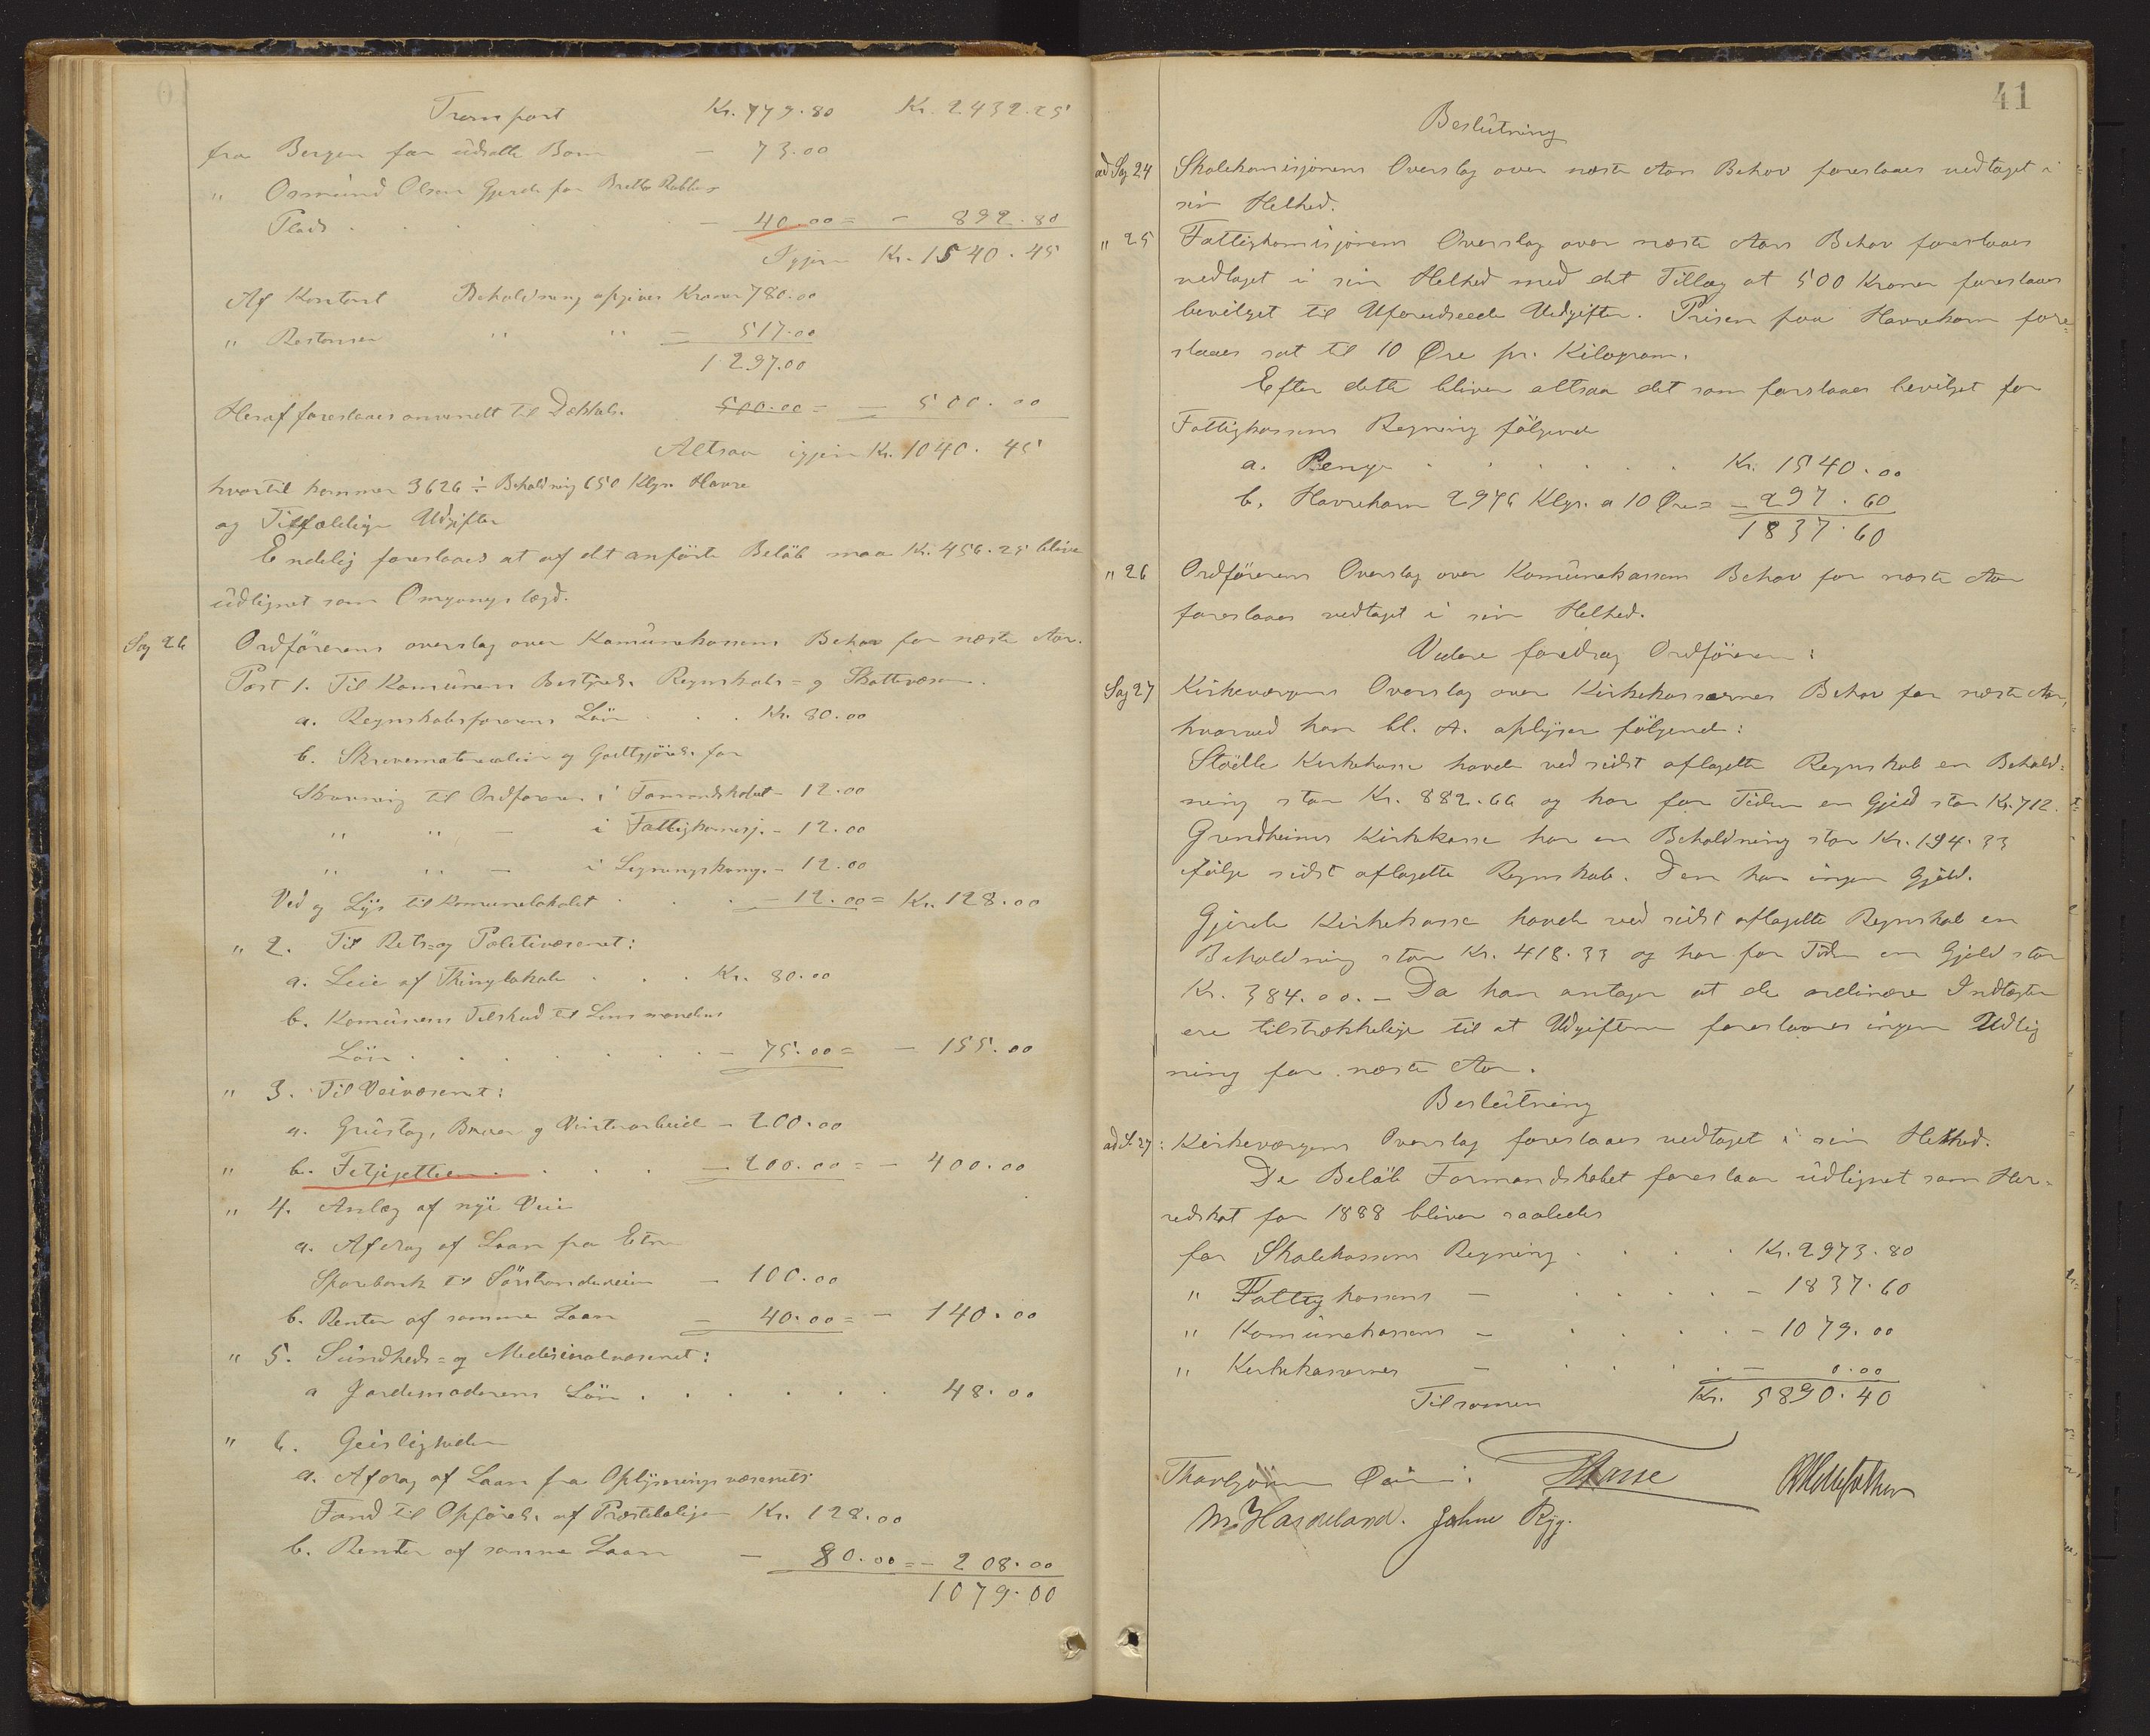 Transport Kr. 779.80 Kr. 2432.25
fra Bergen for udsatte Børn — 73.00
" Osmund Olsen Gjerde for Brittes
Plads . . . . . . — 40.00 = — 892.80
Igjen Kr. 1540.45
Af Kontant Beholdning opgives Kroner 780.00
" Restanser " " — 517.00
1297.00
Heraf foreslaaes anvendt til Dækkels. 500.00 = — 500.00
Altsaa igjen Kr. 1040.45
hvortil kommer 3626 ÷ Beholdning 650 Klgr. Havre
og Tilfældige Udgifter
Endelig foreslaaes at af det anførte Beløb maa Kr. 456.25 blive
udlignet som Omgangslægd.
Sag 26 Ordførerens overslag over Komunekassens Behov for næste Aar.
Post 1. Til Komunens Bestyrels. Regnskabs= og Skattevæsen.
a. Regnskabsførerens Løn . . . Kr. 80.00
b. Skrivematerialier og Godtgjørels. for
Skrivning til Ordføreren i Formandskabet — 12.00
" " — i Fattigkomisj. — 12.00
" " — i Ligningskomm. — 12.00
Ved og Lys til Komunelokalet . . . — 12.00 = Kr. 128.00
" 2. Til Rets= og Politivæsenet:
a. Leie af Thinglokale . . . Kr. 80.00
b. Komunens Tilskud til Lensmandens
Løn . . . . . . . — 75.00 = — 155.00
" 3. Til Veivæsenet:
a. Grustag, Broer og Vinterarbeide — 200.00
" b. . . . . — 200.00 = — 400.00
" 4. Anlæg af nye Veie
a. Afdrag af Laan fra Etne
Sparebank til Sørstrandsveien — 100.00
b. Renter af samme Laan — 40.00 = — 140.00
" 5. Sundheds= og Medisinalvæsenet:
a Jordemoderens Løn . . . . . . 48.00
" 6. Geistligheden
a. Afdrag af Laan fra Oplysningsvæsenets
Fond til Opførels. af Præstebolige Kr. 128.00
b. Renter af samme Laan — 80.00 = — 208.00
1079.00
41
Beslutning
ad Sag 24 Skolekomisjonens Overslag over næste Aars Behov foreslaaes vedtaget i
sin Helhed.
" 25 Fattigkomisjonens Overslag over næste Aars Behov foreslaaes
vedtaget i sin Helhed med det Tillæg at 500 Kroner foreslaaes
bevilget til Uforudseede Udgifter. Prisen paa Havrekorn fore=
slaaes sat til 10 Øre pr. Kilogram.
Efter dette bliver altsaa det som forslaaes bevilget for
Fattigkassens Regning følgende
a. Penge . . . . . . Kr. 1540.00
b. Havrekorn 2976 Klgr. a 10 Øre = — 297.60
1837.60
" 26 Ordførerens Overslag over Komunekassens Behov for næste Aar
foreslaaes vedtaget i sin Helhed.
Videre foredrag Ordføreren:
Sag 27 Kirkeværgens Overslag over Kirkekassernes Behov for næste Aar,
hvorved han bl. A. oplyser følgende:
Støðle Kirkekasse havde ved sidst aflagdte Regnskab en Behold=
ning stor Kr. 882.66 og har for Tiden en Gjeld stor Kr. 712.
Grindheims Kirkekasse har en Beholdning stor Kr. 194.33
ifølge sidst aflagdte Regnskab. Den har ingen Gjeld.
Gjerde Kirkekasse havde ved sidst aflagdte Regnskab en
Beholdning stor Kr. 418.33 og har for Tiden en Gjeld stor
Kr. 384.00. — Da han antager at de ordinære Indtægter
ere tilstrækkelige til at Udgifterne foreslaaes ingen Udlig
ning for næste Aar.
Beslutning
ad S. 27: Kirkeværgens Overslag foreslaaes vedtaget i sin Helhed.
De Beløb Formandskabet foreslaar udlignet som Her=
redskat for 1888 bliver saaledes
for Skolekassens Regning . . . . Kr. 2973.80
" Fattigkassens — . . . . — 1837.60
" Komunekassens — . . . . — 1079.00
" Kirkekassernes — . . . . — 0.00
Tilsammen Kr. 5890.40
Thorbjørn
M. Haardeland. Johne Ryg.